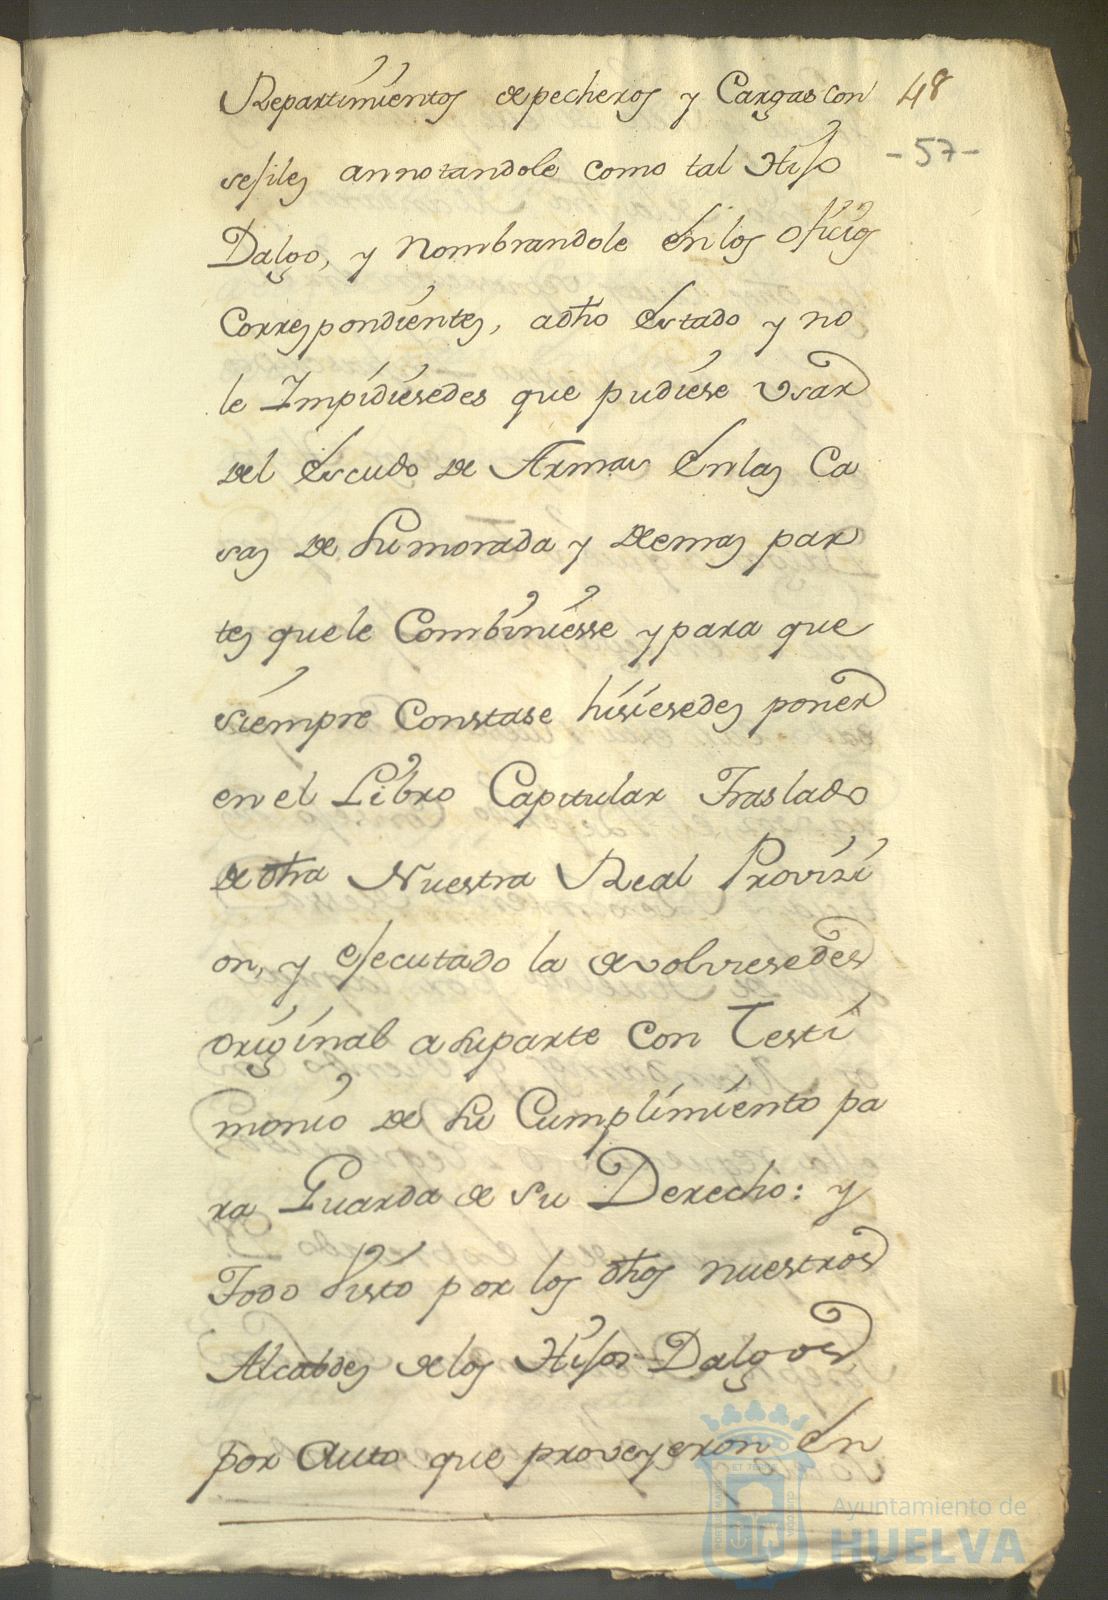 Repartimientos de pecheros y Cargas con 48
sejiles annotandole como tal Hijo - 57 -
Dalgo, y Nombrandole en los ofiçios
Correspondientes, adho estado y no
le Impidiesedes que pudiese Usar
del escudo de Armas en las Ca
sas de su morada y demas par
tes que le Combiniesse y para que
siempre Constase hisiesedes poner
en el Libro Capitular Traslado
de dha Nuestra Real Provizi
on, y ejecutado la devolviesedes
original a su parte con Testi
monio de su Cumplimiento pa
ra Guarda de su Derecho: y
Todo visto por los dhos nuestros
Alcaldes de los Hijos Dalgos
por auto que proveyeron en
Ayuntamiento de
HUELVA